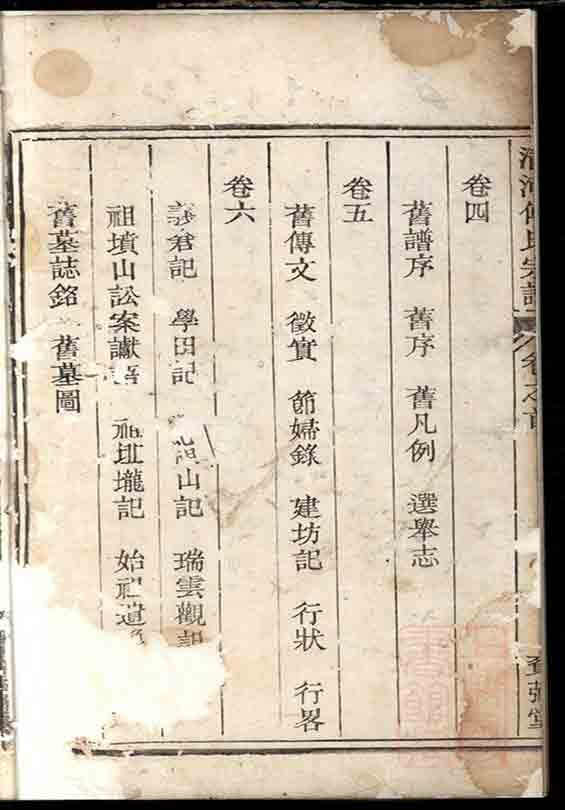 宗譜 卷之首
卷四
舊譜序 舊序 舊凡例 選舉志
卷五
舊傳文 徵實 節婦錄 建坊記 行狀 行畧
卷六
記 學田記 山記 瑞雲觀記
祖墳山訟案讞語 祖坵壠記 始祖道
舊墓誌銘 舊墓圖